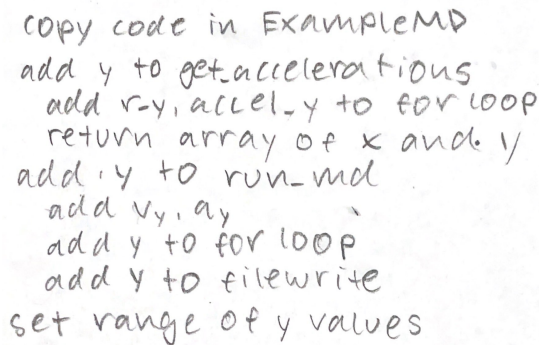 copy code in ExampleMD
add y to get_accelerations
add r_y, accel_y to for loop
return array of x and y
add y to run_md
add vy, ay
add y to for loop
add y to filewrite
set range of y values